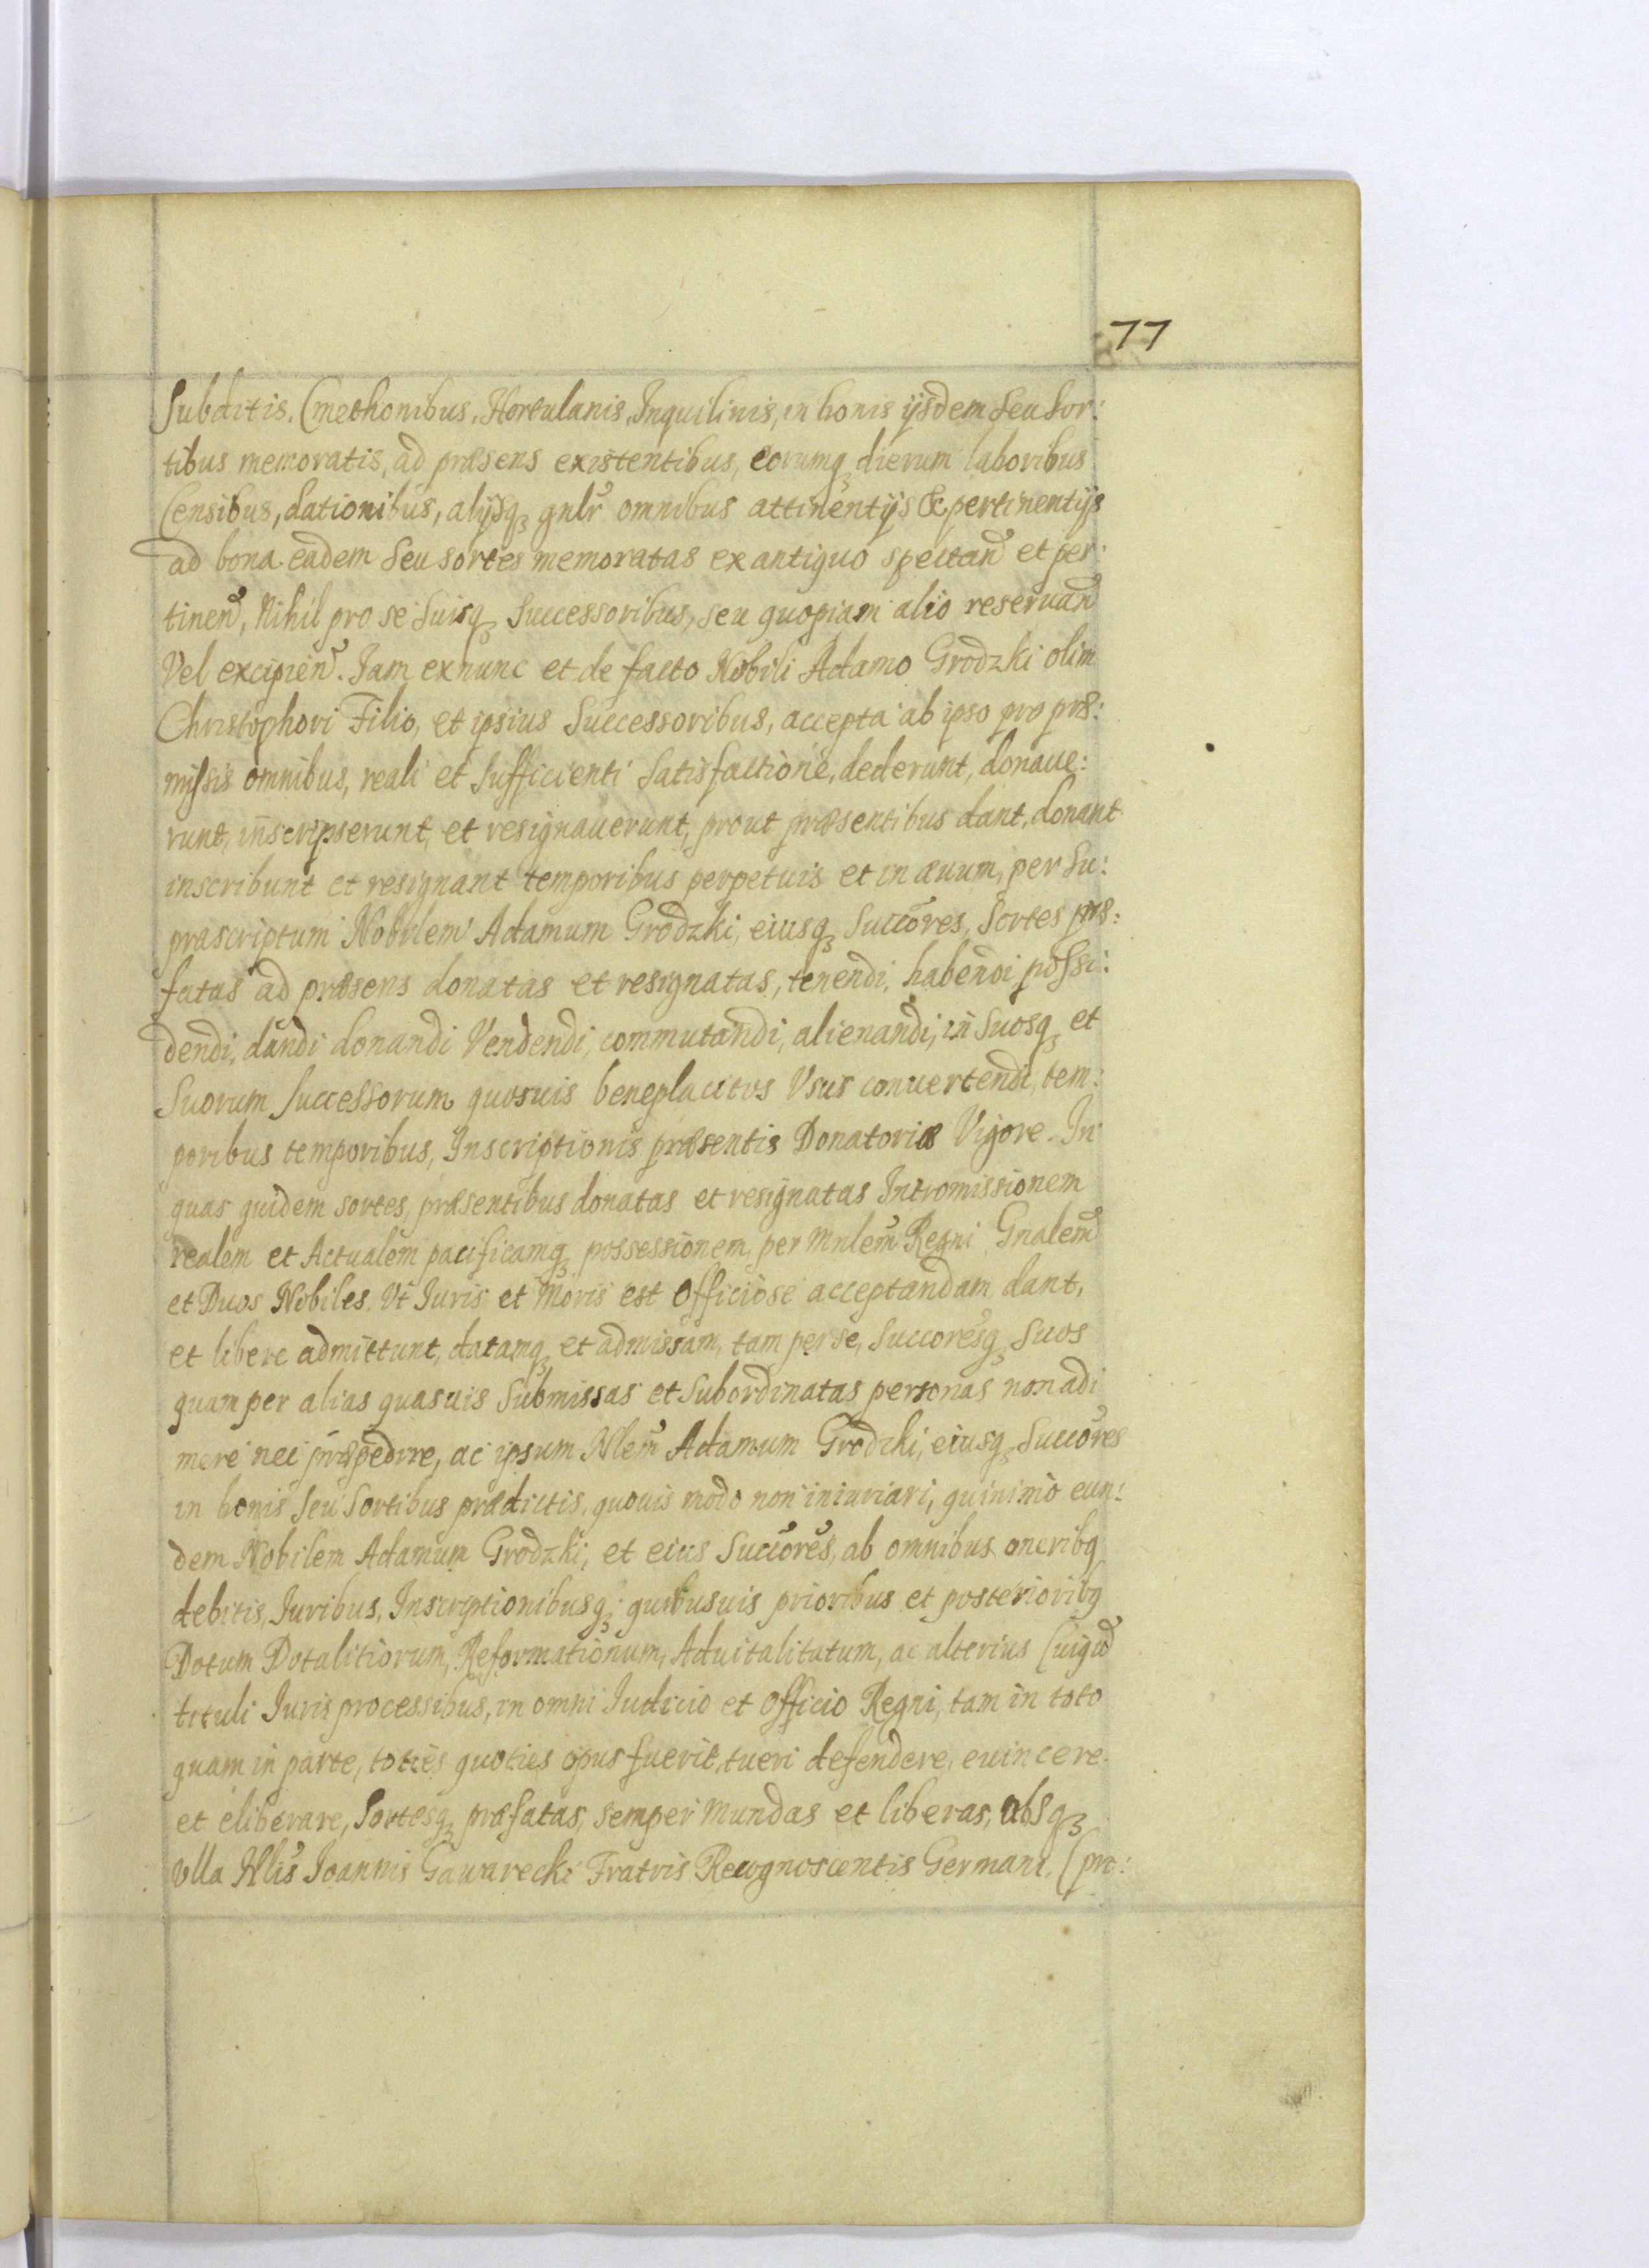 77
Subditis, Cmethonibus, Hortulanis, Inquilinis, in bonis ijsdem seu Sor:
tibus memoratis, ad præsens existentibus, eorumq₃ dierum laboribus
Censibus, dationibus, alijsq₃ gnlr̃ omnibus attinentijs & pertinentijs
ad bona eadem Seu sortes memoratas ex antiquo spectañ et per:
tineñ, Nihil pro se Suisq₃ Successoribus, seu quopiam alio reseruañ
Vel excipieñ. Jam exnunc et de facto Nobili Adamo Grodzki olim
Christophori Filio, et ipsius Successoribus, accepta ab ipso pro præ:
missis omnibus, reali et Sufficienti Satisfactione, dederunt, donaue:
runt, inscripserunt, et resignauerunt, prout præsentibus dant, donant
inscribunt et resignant temporibus perpetuis et in æuum, per Su:
prascriptum Nobilem Adamum Grodzki, eiusq₃ Succõres, Sortes præ:
fatas ad præsens donatas et resignatas, tenendi, habendi possi:
dendi, dandi donandi Vendendi, commutandi, alienandi, in Suosq₃ et
Suorum Successorum quosuis beneplacitos Vsus conuertendi, tem:
poribus temporibus, Inscriptionis præsentis Donatoriæ Vigore. In
quas quidem sortes, præsentibus donatas et resignatas Intromissionem
realem et Actualem pacificamq₃ possessionem, per Mnlem̃ Regni Gnalem̃
et Duos Nobiles, Vt Juris et Moris est Officiose acceptandam dant,
et libere admittunt, datamq₃ et admissam, tam per se, Succoresq₃ Suos
quam per alias quasuis Submissas et Subordinatas personas non adi
mere nec præpedire, ac ipsum Nlem̃ Adamum Grodzki, eiusq₃ Succõres
in bonis Seu Sortibus prædictis, quouis modo non iniuriari, quinimo eun:
dem Nobilem Adamum Grodzki, et eius Succõres, ab omnibus oneribq
debitis, Juribus, Inscriptionibusq₃ quibusuis prioribus et posterioribq
Dotum Dotalitiorum, Reformationum, Aduitalitatum, ac alterius Cuiqũ
tituli Juris processibus, in omni Judicio et Officio Regni, tam in toto
quam in parte, toties quoties opus fuerit, tueri defendere, euincere
et eliberare, Sortesq₃ præfatas, semper Mundas et liberas, absq₃
Vlla Nlis̃ Joannis Gawarecki Fratris Recognoscentis Germani, (pro: